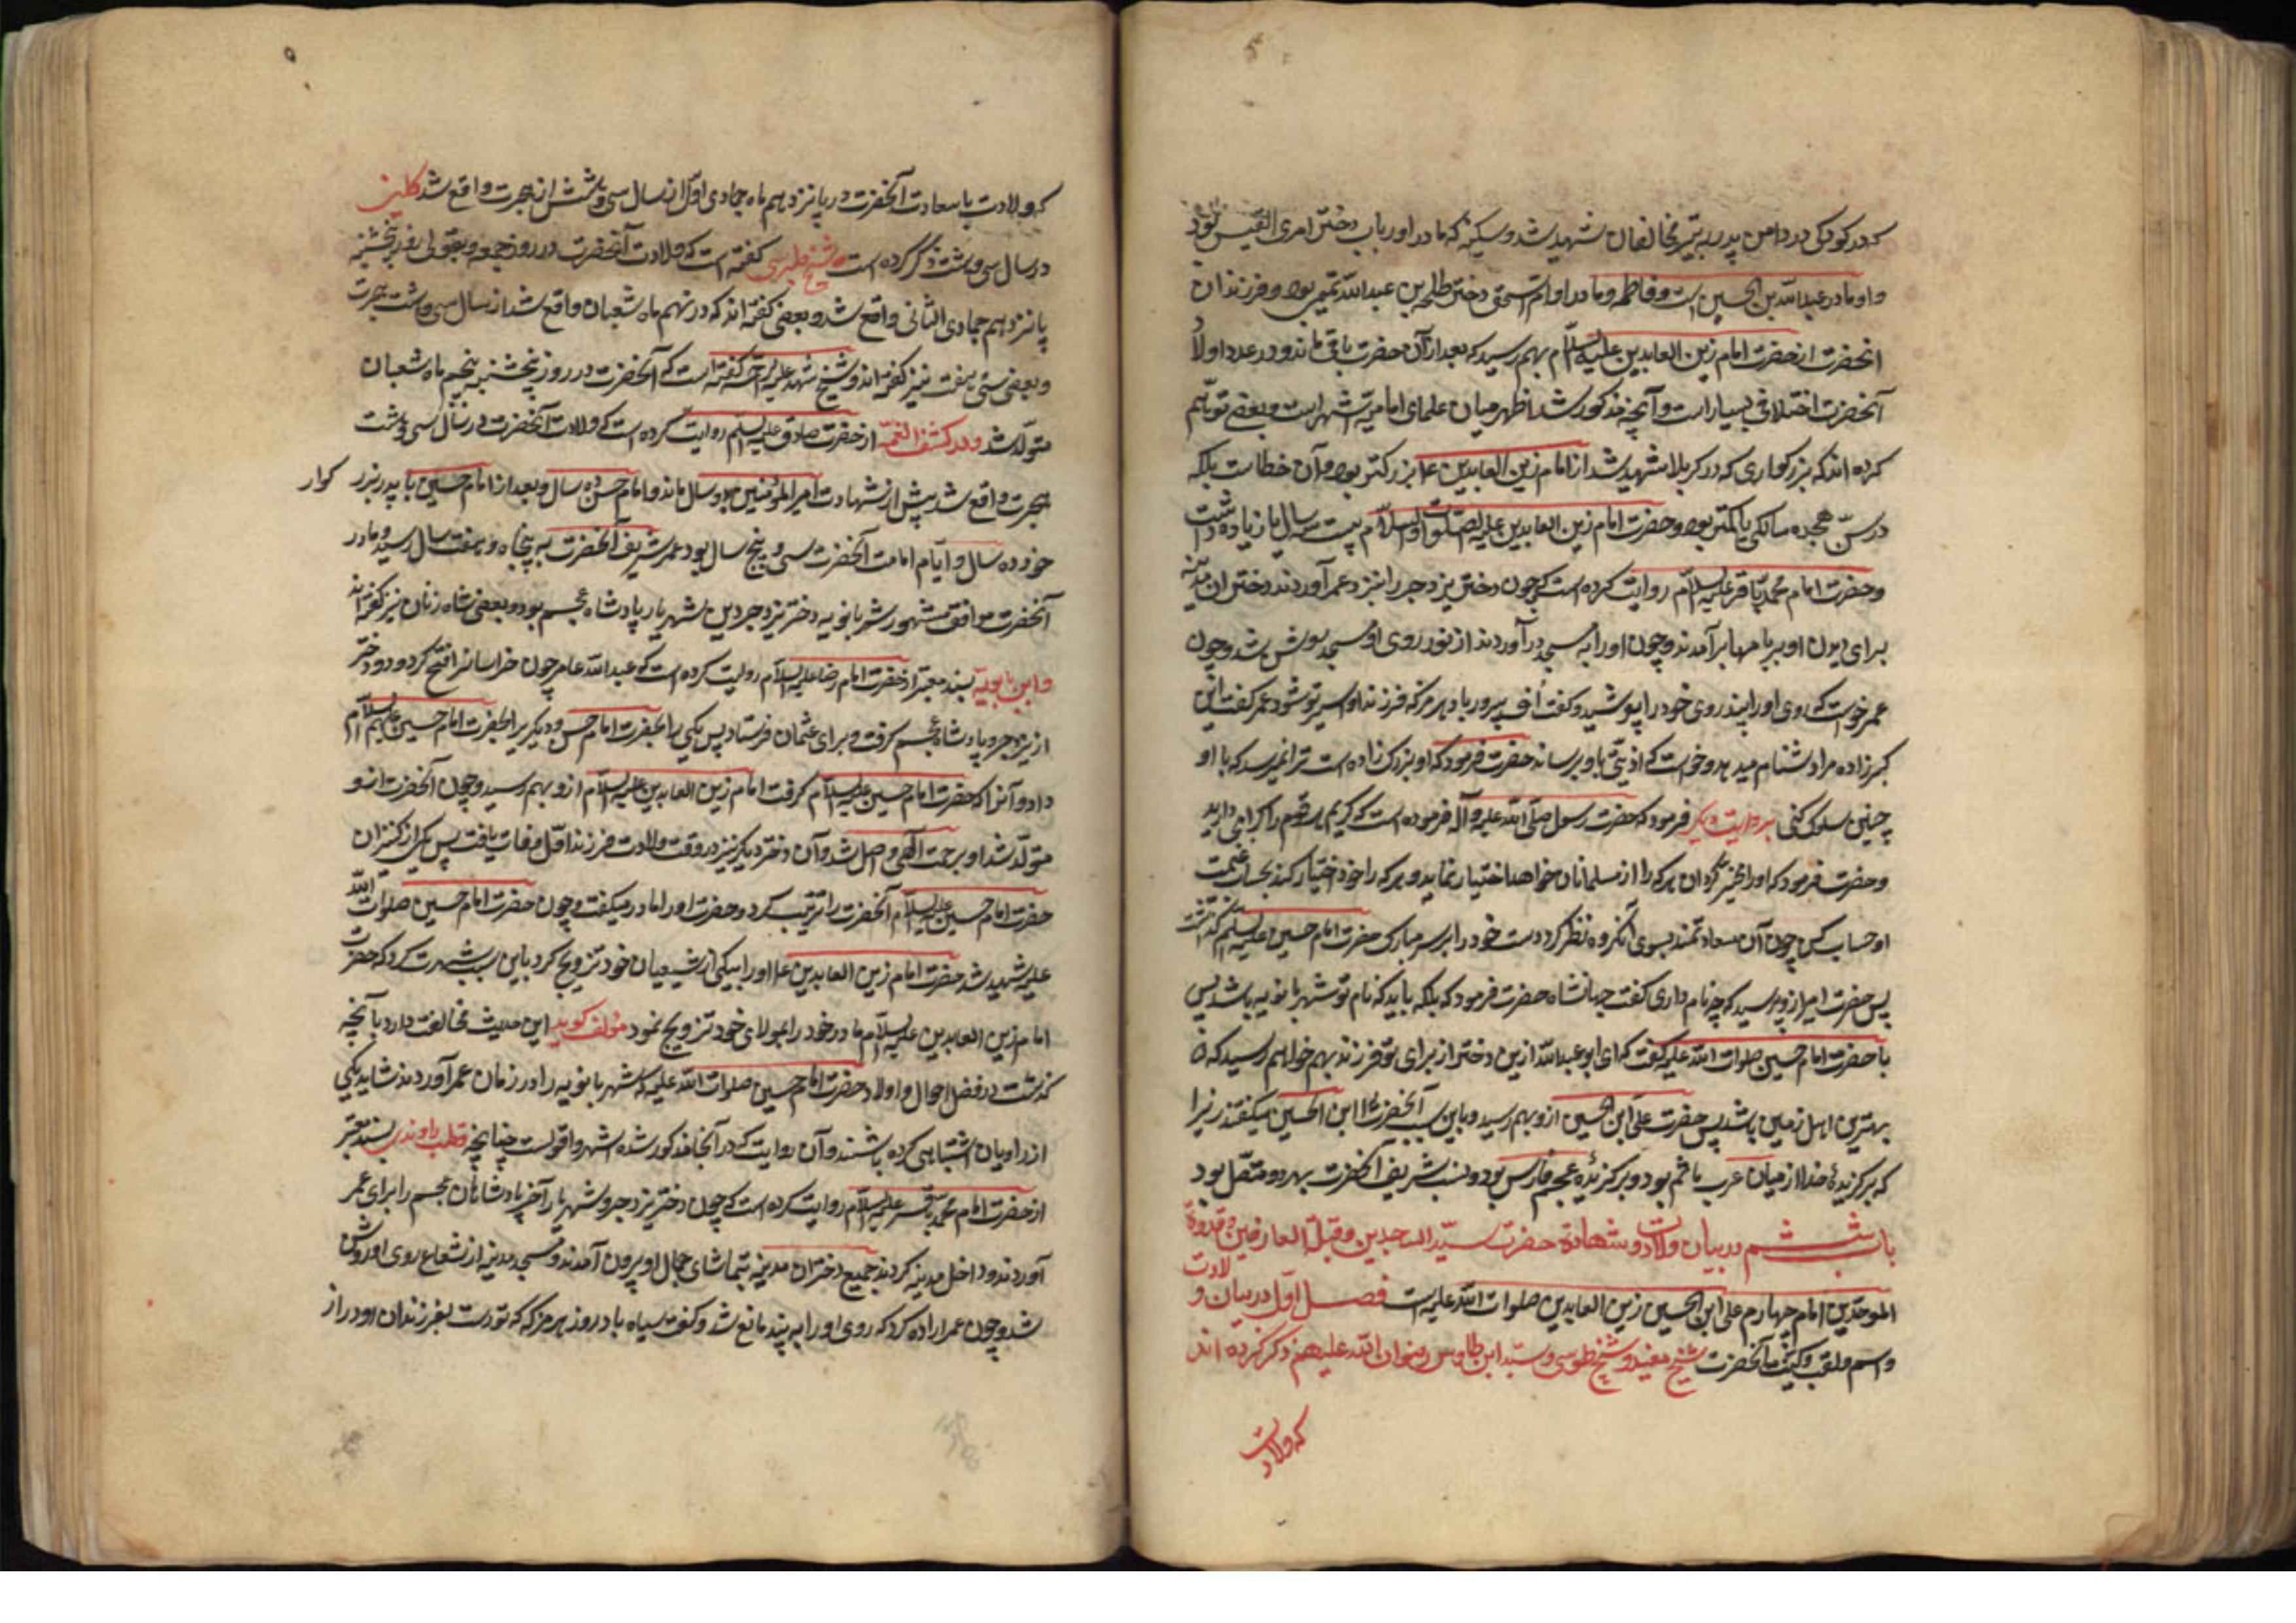 که در کودکی در دامن پدر به تیر مخالفان شهید شد و سکینه که مادر او رباب دختر امری القیس بود
و او مادر عبدالله بن الحسین است و فاطمه و مادر او ام اسحق دختر طلحه بن عبدالله تمیمی بود و فرزندان
انحضرت از حضرت امام زین العابدین علیه السلام بهم رسید که بعد از آن حضرت باقی ماند و در عدد اولاد
آنحضرت اختلاف بسیار است و آنچه مذکور شد اظهر میان علمای امامیه اشهر است و بعضی توهم
کرده اند که بزرکواری که در کربلا شهید شد از امام زین العابدین ع بزرکتر بود و آن خطاست بلکه
در سن هجده سالکی یا کمتر بود و حضرت امام زین العابدین علیه الصلوات و السلام بیست سال یا زیاده داشت
و حضرت امام محمد باقر علیه السلام روایت کرده است که چون دختر یزدجرد را بنزد عمر آوردند دختران مدینه
برای دیدن او بر بامها برآمدند و چون او را به مسجد در آوردند از نور روی او مسجد روشن شد و چون
عمر خواست که روی او را ببیند روی خود را پوشید و کفت اف بیروز باد هرمز که فرزند او اسیر تو شود عمر کفت این
کبرزاده مرا دشنام میدهد و خواست که اذیتی باو برساند حضرت فرمود که او بزرک زاده است ترا نمیرسد که با او
چنین سلوک کنی بروایت دیکر فرمود که حضرت رسول صلی الله علیه و آله فرموده است که کریم هر قوم را کرامی دارید
و حضرت فرمود که او را مخیر کردان هر که را از مسلمانان خواهد اختیار نماید و هر که را خود اختیار کند بحساب غنیمت
او حساب کن چون آن سعادتمند بسوی آنکروه نظر کرد دست خود را بر سر مبارک حضرت امام حسین علیه السلم کذاشت
پس حضرت امیر ازو پرسید که چه نام داری کفت جهانشاه حضرت فرمود که بلکه باید که نام تو شهربانویه باشد پس
با حضرت امام حسین صلوات الله علیه کفت که ای ابو عبدالله ازین دختر از برای تو فرزند بهم خواهد رسید که
بهترین اهل زمین باشد پس حضرت علی ابن الحسین ازو بهم رسید و باین سبب آنحضرت را ابن الحسین میکفتند زیرا
که برکزیدۀ خدا از میان عرب هاشم بود و برکزیدۀ عجم فارس بود و نسب شریف آنحضرت بهر دو متصل بود
باب ششم در بیان ولادت و شهادة حضرت سید الساجدین و قبلة العارفین و قدوة
الموحدین امام چهارم علی ابن الحسین زین العابدین صلوات الله علیه است فصل اول در بیان ولادت
و اسم و لقب و کنیت آنحضرت شیخ مفید و شیخ طوسی و سید ابن طاوس رضوان الله علیهم ذکر کرده اند
که ولادت
که ولادت با سعادت آنحضرت در پانزدهم ماه جمادی اول از سال سی و شش از هجرت واقع شد کلینی
در سال سی و هشت ذکر کرده است شیخ طبرسی کفته است که ولادت آنحضرت در روز جمعه و بقولی روز پنجشنبه
پانزدهم جمادی الثانی واقع شد و بعضی کفته اند که در نهم ماه شعبان واقع شد از سال سی و هشت هجرت
و بعضی سی و هفت نیز کفته اند و شیخ شهید علیه الرحمه کفته است که آنحضرت در روز پنجشنبه پنجم ماه شعبان
متولد شد و در کشف الغمه از حضرت صادق علیه السلم روایت کرده است که ولادت آنحضرت در سال سی و هشت
هجرت واقع شد پیش از شهادت امیر المؤمنین بدو سال ماند و با امام حسن ده سال و بعد از امام حسین با پدر بزر کوار
خود ده سال و ایام امامت آنحضرت سی و پنج سال بود عمر شریف آنحضرت به پنجاه و هفت سال رسید و مادر
آنحضرت موافق مشهور شهربانویه دختر یزدجرد بن شهریار پادشاه عجم بود و بعضی شاه زنان نیز کفته اند
و ابن بابویه بسند معتبر از حضرت امام رضا علیه السلام روایت کرده است که عبدالله عامر چون خراسانرا فتح کرد دو دختر
از یزدجرد پادشاه عجم کرفت و برای عثمان فرستاد پس یکی را بحضرت امام حسن و دیکری را بحضرت امام حسین علیهم السلام
داد و آنرا که حضرت امام حسین علیه السلام کرفت امام زین العابدین علیه السلام ازو بهم رسید و چون آنحضرت ازو
متولد شد او برحمت الهی واصل شد و آن دختر دیکر نیز در وقت ولادت فرزند اول وفات یافت پس یکی از کنیزان
حضرت امام حسین علیه السلام آنحضرت را تربیت کرد و حضرت او را مادر میکفت و چون حضرت امام حسین صلوات الله
علیه شهید شد حضرت امام زین العابدین ع او را بیکی از شیعیان خود تزویج کرد باین سبب شهرت کرد که حضرت
امام زین العابدین علیه السلام مادر خود را بمولای خود تزویج نمود مؤلف کوید این حدیث مخالفت دارد با آنچه
کذشت در فصل احوال و اولاد حضرت امام حسین صلوات الله علیه که شهربانویه را در زمان عمر آوردند شاید یکی
از راویان اشتباهی کرده باشند و آن روایت که در آنجا مذکور شده اشهر و اقویست چنانچه قطب راوندی بسند معتبر
از حضرت امام محمد باقر علیه السلام روایت کرده است که چون دختر یزدجرد شهریار آخر پادشاهان عجم را برای عمر
آوردند و داخل مدینه کردند جمیع دختران مدینه بتماشای جمال او بیرون آمدند و مسجد مدینه از شعاع روی او روشن
شد و چون عمر اراده کرد که روی او را به بیند مانع شد و کفت سیاه باد روز هرمز که تو دست بفرزندان او دراز